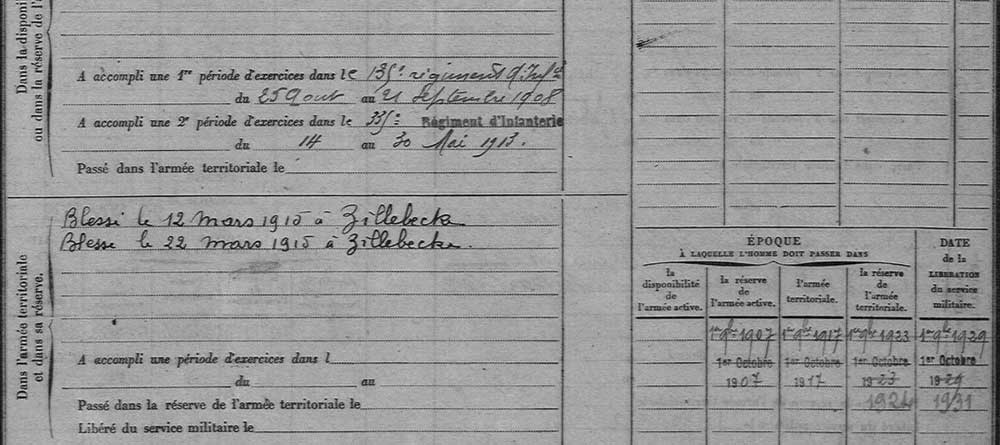 Dans la disponi
ou dans la réserve de l'a
A accompli une 1re période d'exercices dans le 135e régiment d'Infie
du 25 Aout au 21 Septembre 1908
A accompli une 2e période d'exercices dans le 335e Régiment d'Infanterie
du 14 au 30 Mai 1913.
Passé dans l'armée territoriale le
Dans l'armée territoriale
et dans sa réserve.
Blessé le 12 mars 1915 à Zillebecke
Blesse le 22 mars 1915 à Zillebecke.
A accompli une période d'exercices dans l
du au
Passé dans la réserve de l'armée territoriale le
Libéré du service militaire le
ÉPOQUE
À LAQUELLE L'HOMME DOIT PASSER DANS
la
disponibilité
de
l'armée active.
la réserve
de
l'armée active.
l'armée
territoriale.
la réserve
de
l'armée
territoriale.
DATE
de la
LIBÉRATION
du service
militaire.
1er 9bre 1907 1er 9bre 1917 1er 9bre 1923 1er 9bre 1929
1er Octobre 1er Octobre 1er Octobre 1er Octobre
1907 1917 1923 1929
1924 1931